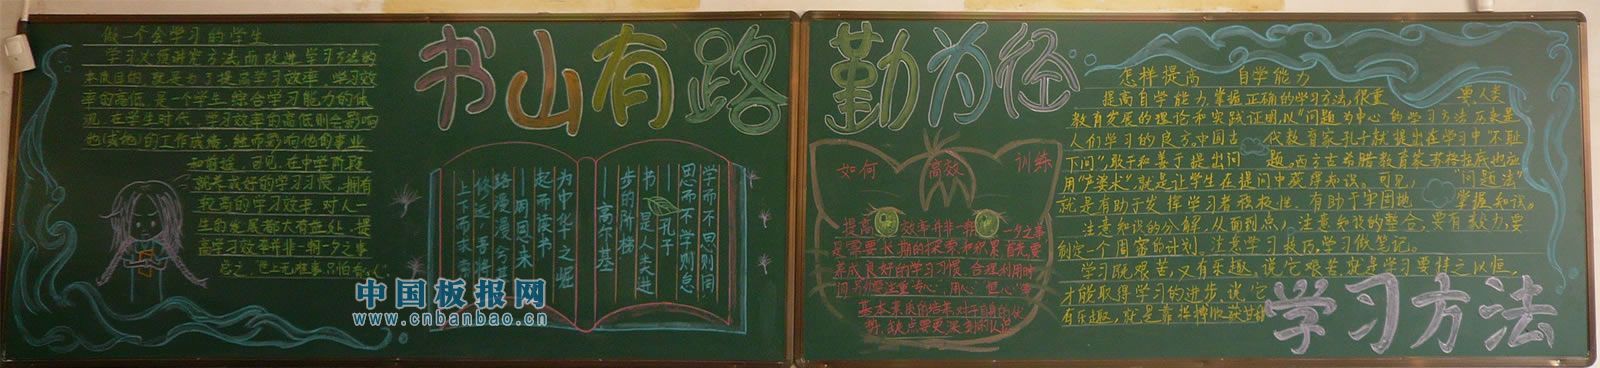 书山有路
勤为径
做一个会学习的学生
学习必须讲究方法,而改进学习方法的
本质目的,就是为了提高学习效率。学习效
率的高低,是一个学生综合学习能力的体
现。在学生时代,学习效率的高低则会影响
他(或她)的工作成绩,继而影响他的事业
和前途。可见,在中学阶段
就养成好的学习习惯,拥有
较高的学习效率,对人一
生的发展都大有益处。提
高学习效率并非一朝一夕之事
总之,“世上无难事,只怕有心人
学而不思则罔
思而不学则怠
——孔子
书是人类进
步的阶梯
——高尔基
为中华之崛
起而读书
——周恩来
路漫漫兮其
修远,吾将
上下而求索
中国板报网
www.cnbanbao.cn
如何 高效 训练
提高 效率并非一朝一夕之事
是需要长期的探索和积累。首先,要
养成良好的学习习惯,合理利用时
间,另外要注重“专心”,用心“恒心”等
基本素质的培养,对于自身的优
势,缺点等更深刻的认识
怎样提高 自学能力
提高自学能力,掌握正确的学习方法,很重 要,人类
教育发展的理论和实践证明,以“问题为中心”的学习方法历来是
人们学习的良方。中国古 代教育家孔子就提出在学习中“不耻
下问”,敢于和善于提出问 题。西方古希腊教育家苏格拉底也应
用“产婆术”,就是让学生在提问中获得知识。可见, “问题法”
就是有助于发挥学习者积极性,有助于牢固地 掌握知识。
注意知识的分解,从面到点,注意知识的整合,要有毅力,要
制定一个周密的计划,注意学习技巧,学习做笔记。
学习既艰苦,又有乐趣。说它艰苦,就是学习要持之以恒,
才能取得学习的进步,说它
有乐趣,就是靠拼搏收获甘甜
学习方法